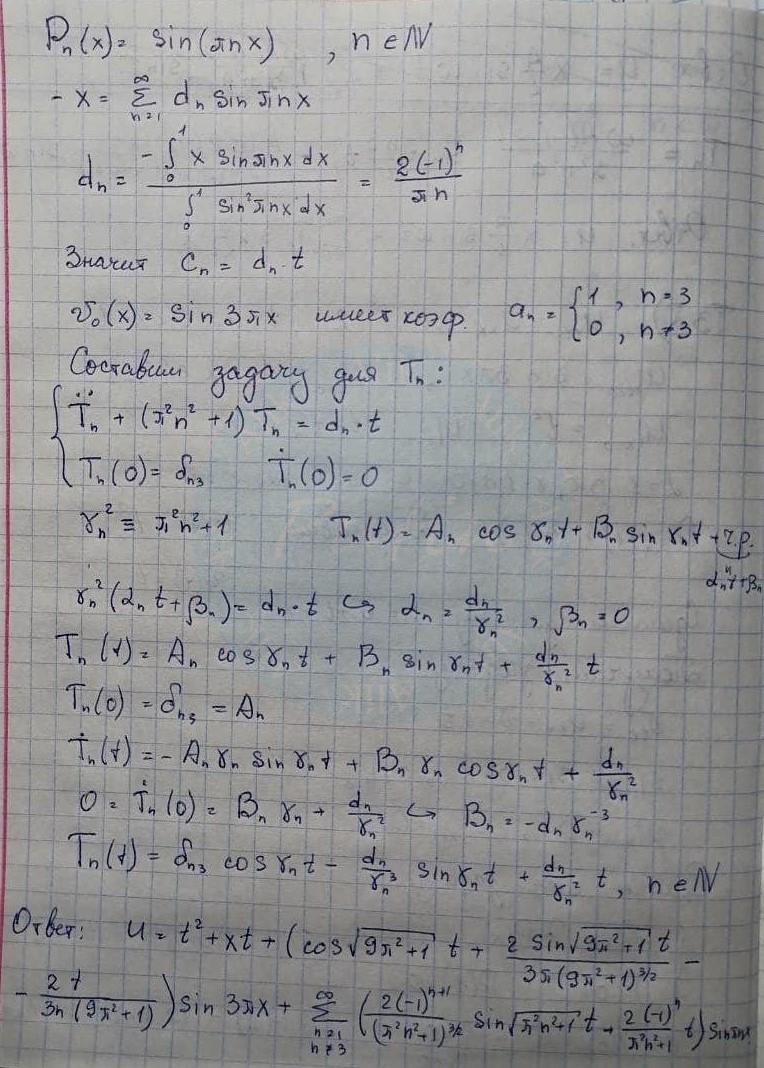 Pₙ(x) = sin(πnx) , n ∈ ℕ
- x = Σₙ₌₁^∞ dₙ sin πnx
dₙ = (-∫₀¹ x sin πnx dx)/(∫₀¹ sin² πnx dx) = 2(-1)ⁿ/(πn)
Значит Cₙ = dₙ · t
v₀(x) = sin 3πx имеет коэф. aₙ = {1, n = 3; 0, n ≠ 3
Составим задачу для Tₙ:
{ T̈ₙ + (π²n² + 1) Tₙ = dₙ · t
Tₙ(0) = δₙ₃ Ṫₙ(0) = 0
γₙ² ≡ π²n² + 1 Tₙ(t) = Aₙ cos γₙt + Bₙ sin γₙt + ч.р.
" αₙt + βₙ
γₙ²(αₙt + βₙ) = dₙ · t ↪ αₙ = dₙ/γₙ² , βₙ = 0
Tₙ(t) = Aₙ cos γₙt + Bₙ sin γₙt + dₙ/γₙ² t
Tₙ(0) = δₙ₃ = Aₙ
Ṫₙ(t) = - Aₙ γₙ sin γₙt + Bₙ γₙ cos γₙt + dₙ/γₙ²
0 = Ṫₙ(0) = Bₙ γₙ + dₙ/γₙ² ↪ Bₙ = -dₙ γₙ⁻³
Tₙ(t) = δₙ₃ cos γₙt - dₙ/γₙ³ sin γₙt + dₙ/γₙ² t, n ∈ ℕ
Ответ: u = t² + xt + (cos √(9π²+1) t + (2 sin √(9π²+1) t)/(3π(9π²+1)^(3/2)) -
- 2t/(3π(9π²+1))) sin 3πx + Σₙ₌₁, ₙ≠₃^∞ (2(-1)ⁿ⁺¹/(π²n²+1)^(3/2) sin √(π²n²+1) t + 2(-1)ⁿ/(π²n²+1) t) sin πnx